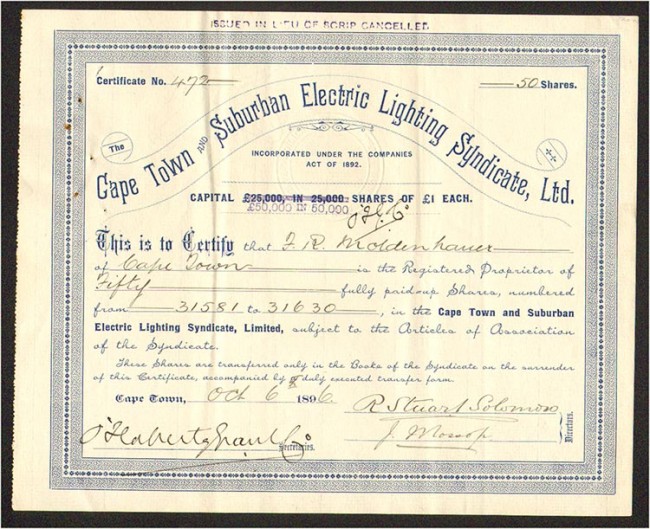 ISSUED IN LIEU OF SCRIP CANCELLED
Certificate No. 472 50 Shares.
The Cape Town AND Suburban Electric Lighting Syndicate, Ltd.
INCORPORATED UNDER THE COMPANIES
ACT OF 1892.
CAPITAL £25,000, IN 25,000 SHARES OF £1 EACH.
£50,000 IN 50,000
This is to Certify that F. R. Moldenhauer
of Cape Town is the Registered Proprietor of
Fifty fully paid-up Shares, numbered
from 31581 to 31630, in the Cape Town and Suburban
Electric Lighting Syndicate, Limited, subject to the Articles of Association
of the Syndicate.
These Shares are transferred only in the Books of the Syndicate on the surrender
of this Certificate, accompanied by duly executed transfer form.
Cape Town, Oct 6th 1896
R Stuart Solomon
J. Mossop
Directors.
Secretaries.